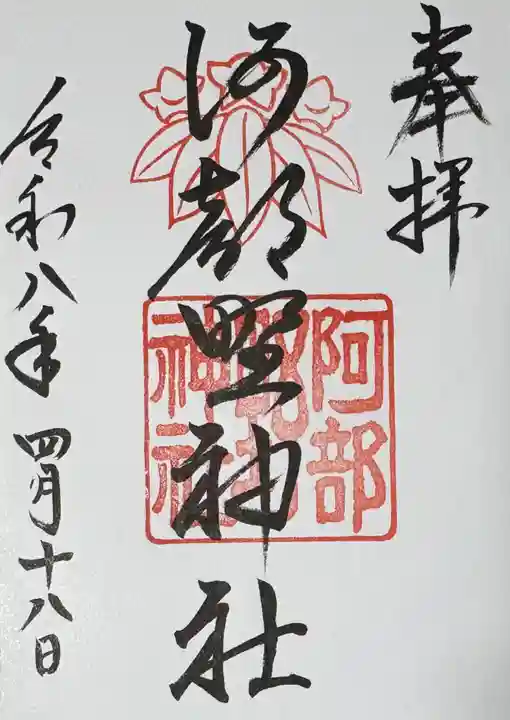 奉拝
阿部野神社
阿部
神社
令和八年 四月十八日